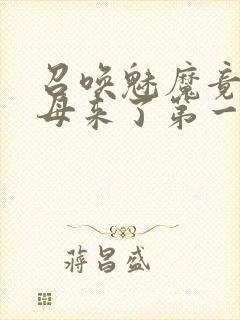 召唤魅魔竟
母来了第一
蒋昌盛